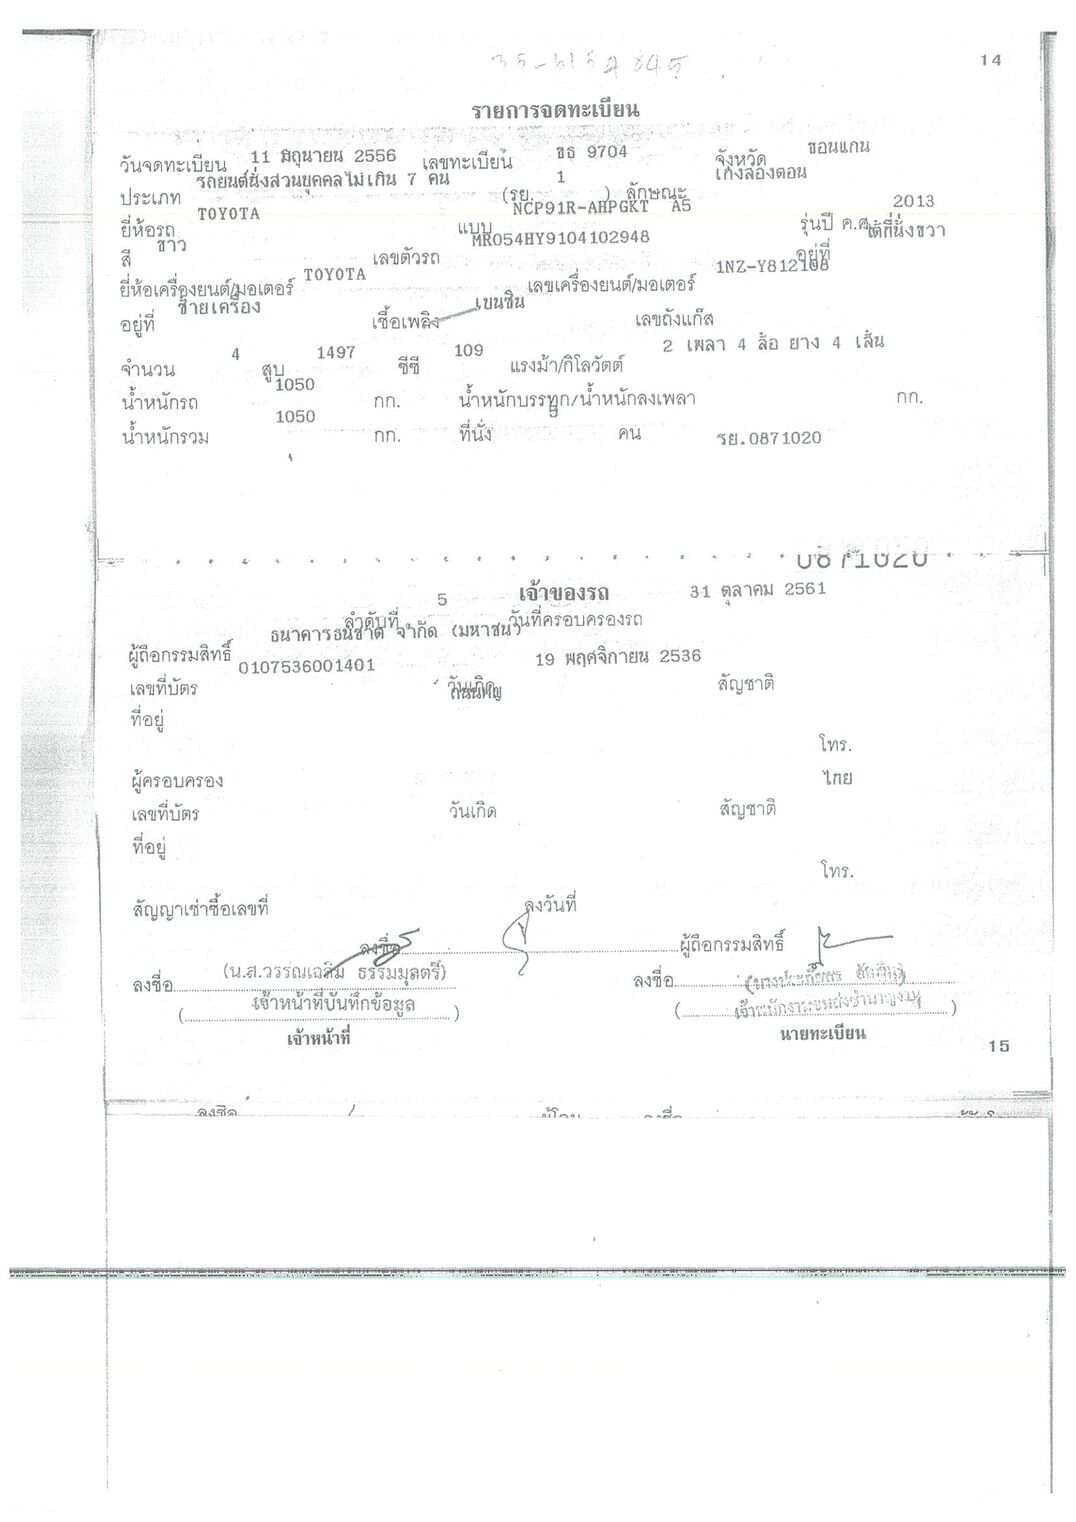 14
รายการจดทะเบียน
วันจดทะเบียน 11 มิถุนายน 2556 เลขทะเบียน ขธ 9704 จังหวัด ขอนแก่น
ประเภท รถยนต์นั่งส่วนบุคคลไม่เกิน 7 คน (รย. 1 ) ลักษณะ เก๋งสองตอน
ยี่ห้อรถ TOYOTA แบบ NCP91R-AHPGKT A5 รุ่นปี ค.ศ. 2013
สี ขาว เลขตัวรถ MR054HY9104102948 อยู่ที่ ใต้ที่นั่งขวา
ยี่ห้อเครื่องยนต์/มอเตอร์ TOYOTA เลขเครื่องยนต์/มอเตอร์ 1NZ-Y812108
อยู่ที่ ซ้ายเครื่อง เชื้อเพลิง เบนซิน เลขถังแก๊ส
จำนวน 4 สูบ 1497 ซีซี 109 แรงม้า/กิโลวัตต์ 2 เพลา 4 ล้อ ยาง 4 เส้น
น้ำหนักรถ 1050 กก. น้ำหนักบรรทุก/น้ำหนักลงเพลา กก.
น้ำหนักรวม 1050 กก. ที่นั่ง 5 คน รย.0871020
0871020
เจ้าของรถ
ลำดับที่ 5 วันที่ครอบครองรถ 31 ตุลาคม 2561
ผู้ถือกรรมสิทธิ์ ธนาคารธนชาต จำกัด (มหาชน)
เลขที่บัตร 0107536001401 วันเกิด 19 พฤศจิกายน 2536 สัญชาติ
ที่อยู่
โทร.
ผู้ครอบครอง ไทย
เลขที่บัตร วันเกิด สัญชาติ
ที่อยู่
โทร.
สัญญาเช่าซื้อเลขที่ ลงวันที่
ลงชื่อ ผู้ถือกรรมสิทธิ์
ลงชื่อ (น.ส.วรรณเฉลิม ธรรมมุลตรี) ลงชื่อ
(เจ้าหน้าที่บันทึกข้อมูล) (เจ้าพนักงานขนส่งชำนาญงาน)
เจ้าหน้าที่ นายทะเบียน
15
ลงชื่อ ผู้โอน ลงชื่อ